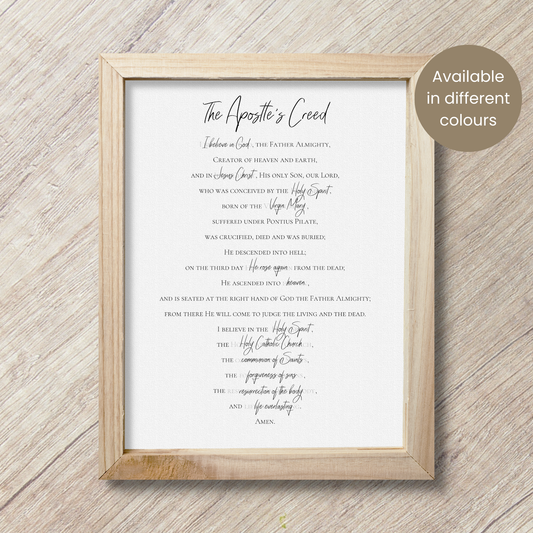 The Apostle's Creed
I believe in God, the Father Almighty,
Creator of heaven and earth,
and in Jesus Christ, His only Son, our Lord,
who was conceived by the Holy Spirit,
born of the Virgin Mary,
suffered under Pontius Pilate,
was crucified, died and was buried;
He descended into hell;
on the third day He rose again from the dead;
He ascended into heaven,
and is seated at the right hand of God the Father Almighty;
from there He will come to judge the living and the dead.
I believe in the Holy Spirit,
the Holy Catholic Church
the communion of Saints,
the forgiveness of sins
the resurrection of the body
and life everlasting.
Amen.
Available
in different
colours